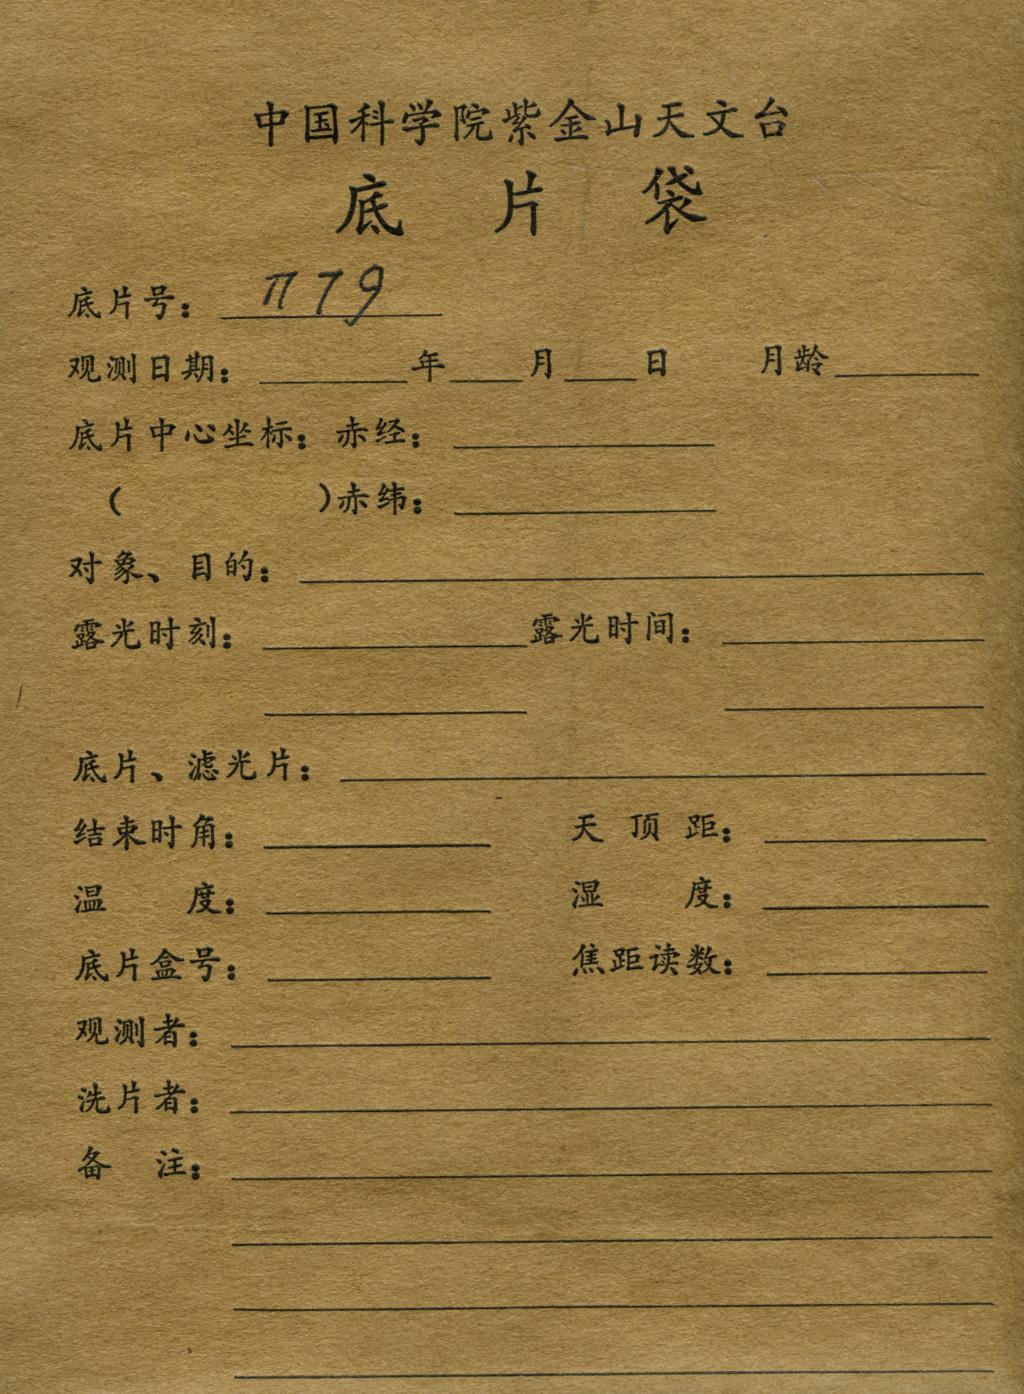 中国科学院紫金山天文台
底片袋
底片号： π79
观测日期： 年 月 日 月龄
底片中心坐标：赤经：
( )赤纬：
对象、目的：
露光时刻： 露光时间：
底片、滤光片：
结束时角： 天顶距：
温度： 湿度：
底片盒号： 焦距读数：
观测者：
洗片者：
备注：